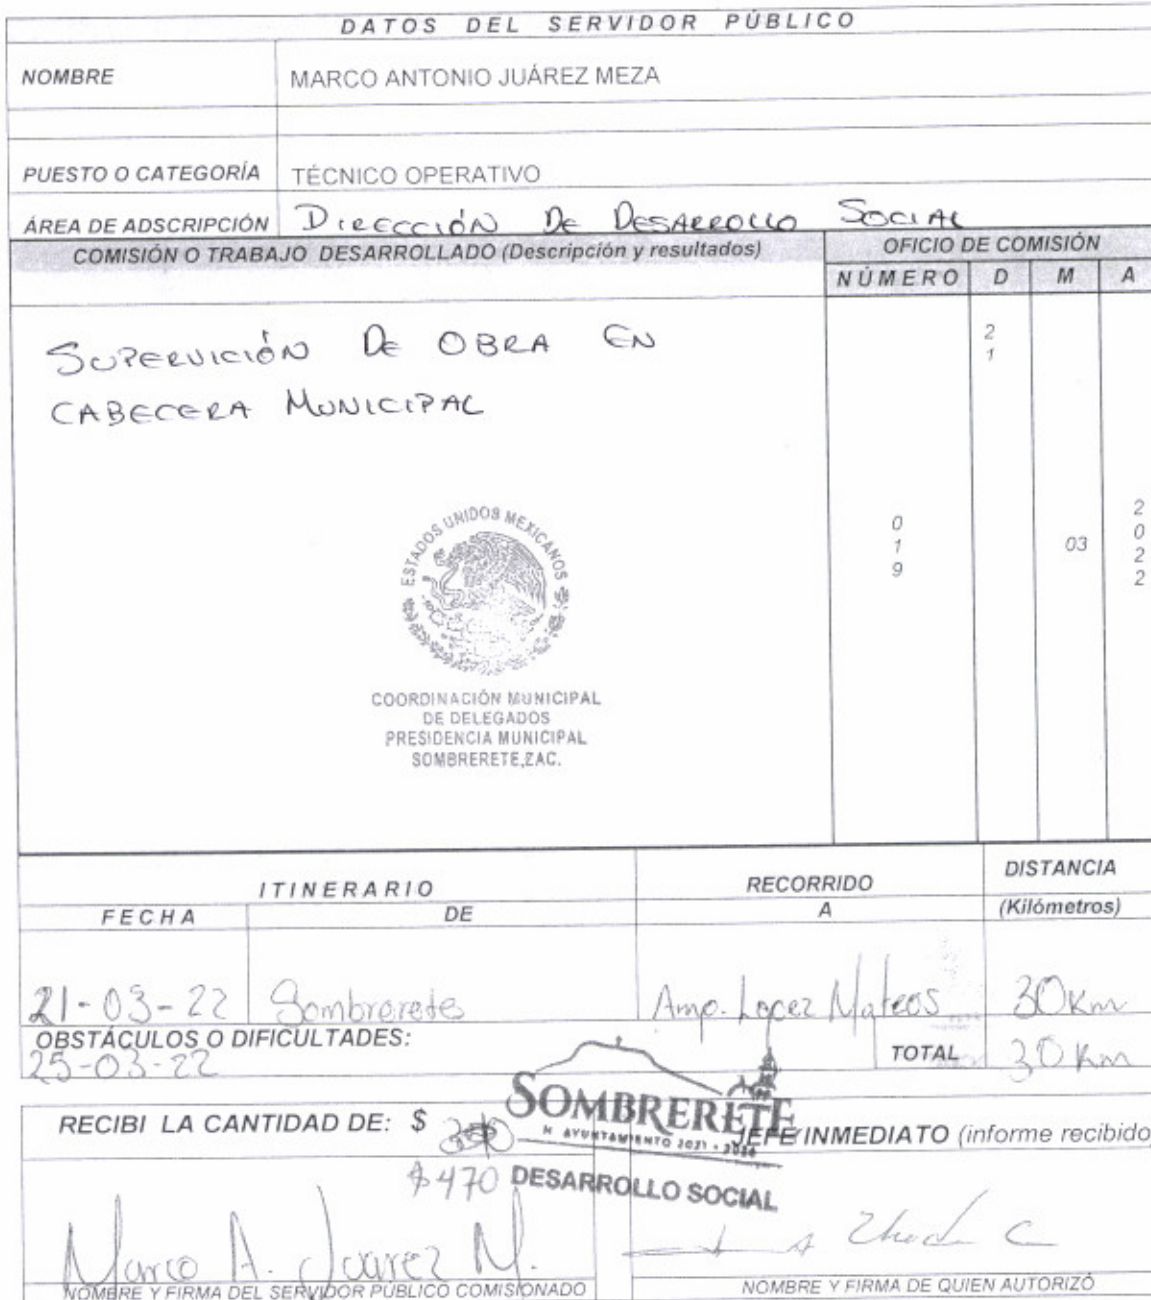 DATOS DEL SERVIDOR PÚBLICO
NOMBRE MARCO ANTONIO JUÁREZ MEZA
PUESTO O CATEGORÍA TÉCNICO OPERATIVO
ÁREA DE ADSCRIPCIÓN DIRECCIÓN DE DESARROLLO SOCIAL
COMISIÓN O TRABAJO DESARROLLADO (Descripción y resultados) OFICIO DE COMISIÓN
NÚMERO D M A
SUPERVICIÓN DE OBRA EN
CABECERA MUNICIPAL
2
1
0
1
9
03
2
0
2
2
ESTADOS UNIDOS MEXICANOS
COORDINACIÓN MUNICIPAL
DE DELEGADOS
PRESIDENCIA MUNICIPAL
SOMBRERETE,ZAC.
ITINERARIO RECORRIDO DISTANCIA
FECHA DE A (Kilómetros)
21-03-22 Sombrerete Amp. Lopez Mateos 30Km
OBSTÁCULOS O DIFICULTADES:
25-03-22
TOTAL 30 Km
SOMBRERETE
H AYUNTAMIENTO 2021 - 2024
DESARROLLO SOCIAL
RECIBI LA CANTIDAD DE: $
JEFE INMEDIATO (informe recibido
$470
Marco A. Juarez M.
NOMBRE Y FIRMA DEL SERVIDOR PÚBLICO COMISIONADO
NOMBRE Y FIRMA DE QUIEN AUTORIZÓ